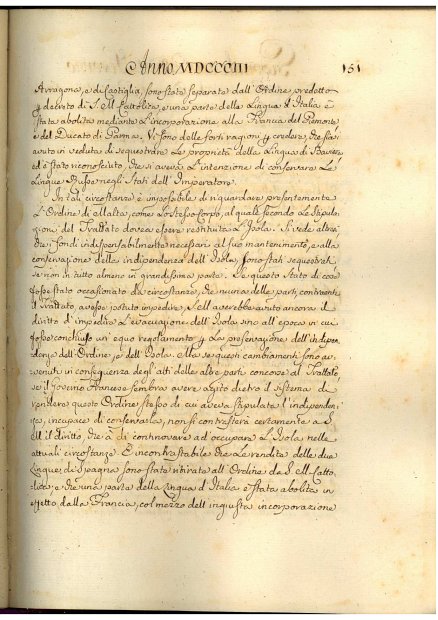 Anno MDCCCIII
151
Arragona, e di Castiglia, sono state separate dall'Ordine predetto
decreto di S. M. Cattolica, e una parte della Lingua d'Italia è
stata abolita mediante l'incorporazione alla Francia del Piemonte
e del Ducato di Parma. Vi sono delle forti ragioni credere, che sia
avuto in veduta di sequestrare le proprietà della Lingua di Baviera
ed è stato riconosciuto, che si aveva l'intenzione di conservare le
Lingue Russe negli Stati dell'Imperatore.
In tali circostanze è impossibile di riguardare presentemente
l'Ordine di Malta, come lo stesso Corpo, al quale secondo la stipula
zione del Trattato dovea essere restituita l'Isola. Si vede altresì
che i fondi indispensabilmente necessari al suo mantenimento, e alla
conservazione della indipendenza dell'Isola, sono stati sequestrati
se non in tutto almeno in grandissima parte. Se questo stato di cose
fosse stato occasionato da circostanze, che niuna delle parti contraenti
il Trattato, avesse potuto impedire, S. M. averebbe avuto ancora il
diritto d'impedire l'evacuazione dell'Isola sino all'epoca in cui
fosse conchiuso un equo regolamento la preservazione dell'indipen
denza dell'Ordine, e dell'Isola. Ma se questi cambiamenti sono av
venuti in conseguenza degli atti delle altre parti concorse al Trattato
se il Governo Francese sembra avere agito dietro il sistema di
rendere questo Ordine stesso di cui aveva stipulata l'indipenden
za, incapace di conservarla, non si contrasterà certamente a S.
M. il diritto, che à di continovare ad occupare l'Isola nelle
attuali circostanze. È incontrastabile che le rendite delle due
Lingue di Spagna sono state ritirate all'Ordine da S. M. Catto-
lica, e che una parte della Lingua d'Italia è stata abolita in
effetto dalla Francia, col mezzo dell'ingiusta incorporazione